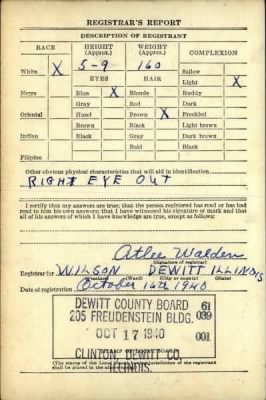 REGISTRAR'S REPORT
DESCRIPTION OF REGISTRANT
RACE HEIGHT (Approx.) WEIGHT (Approx.) COMPLEXION
5-9 160 Sallow
White X EYES HAIR Light X
Negro Blue X Blonde Ruddy
Gray Red Dark
Oriental Hazel Brown X Freckled
Brown Black Light brown
Indian Black Gray Dark brown
Bald Black
Filipino
Other obvious physical characteristics that will aid in identification
RIGHT EYE OUT
I certify that my answers are true; that the person registered has read or has
had read to him his own answers; that I have witnessed his signature or mark and that
all of his answers of which I have knowledge are true, except as follows:
Atlee Walden
(Signature of registrar)
Registrar for WILSON DEWITT ILLINOIS
(Precinct) (Ward) (City or county) (State)
Date of registration October 16th 1940
DEWITT COUNTY BOARD 61
205 FREUDENSTEIN BLDG. 039
OCT 17 1940 001
CLINTON, DEWITT CO.
ILLINOIS.